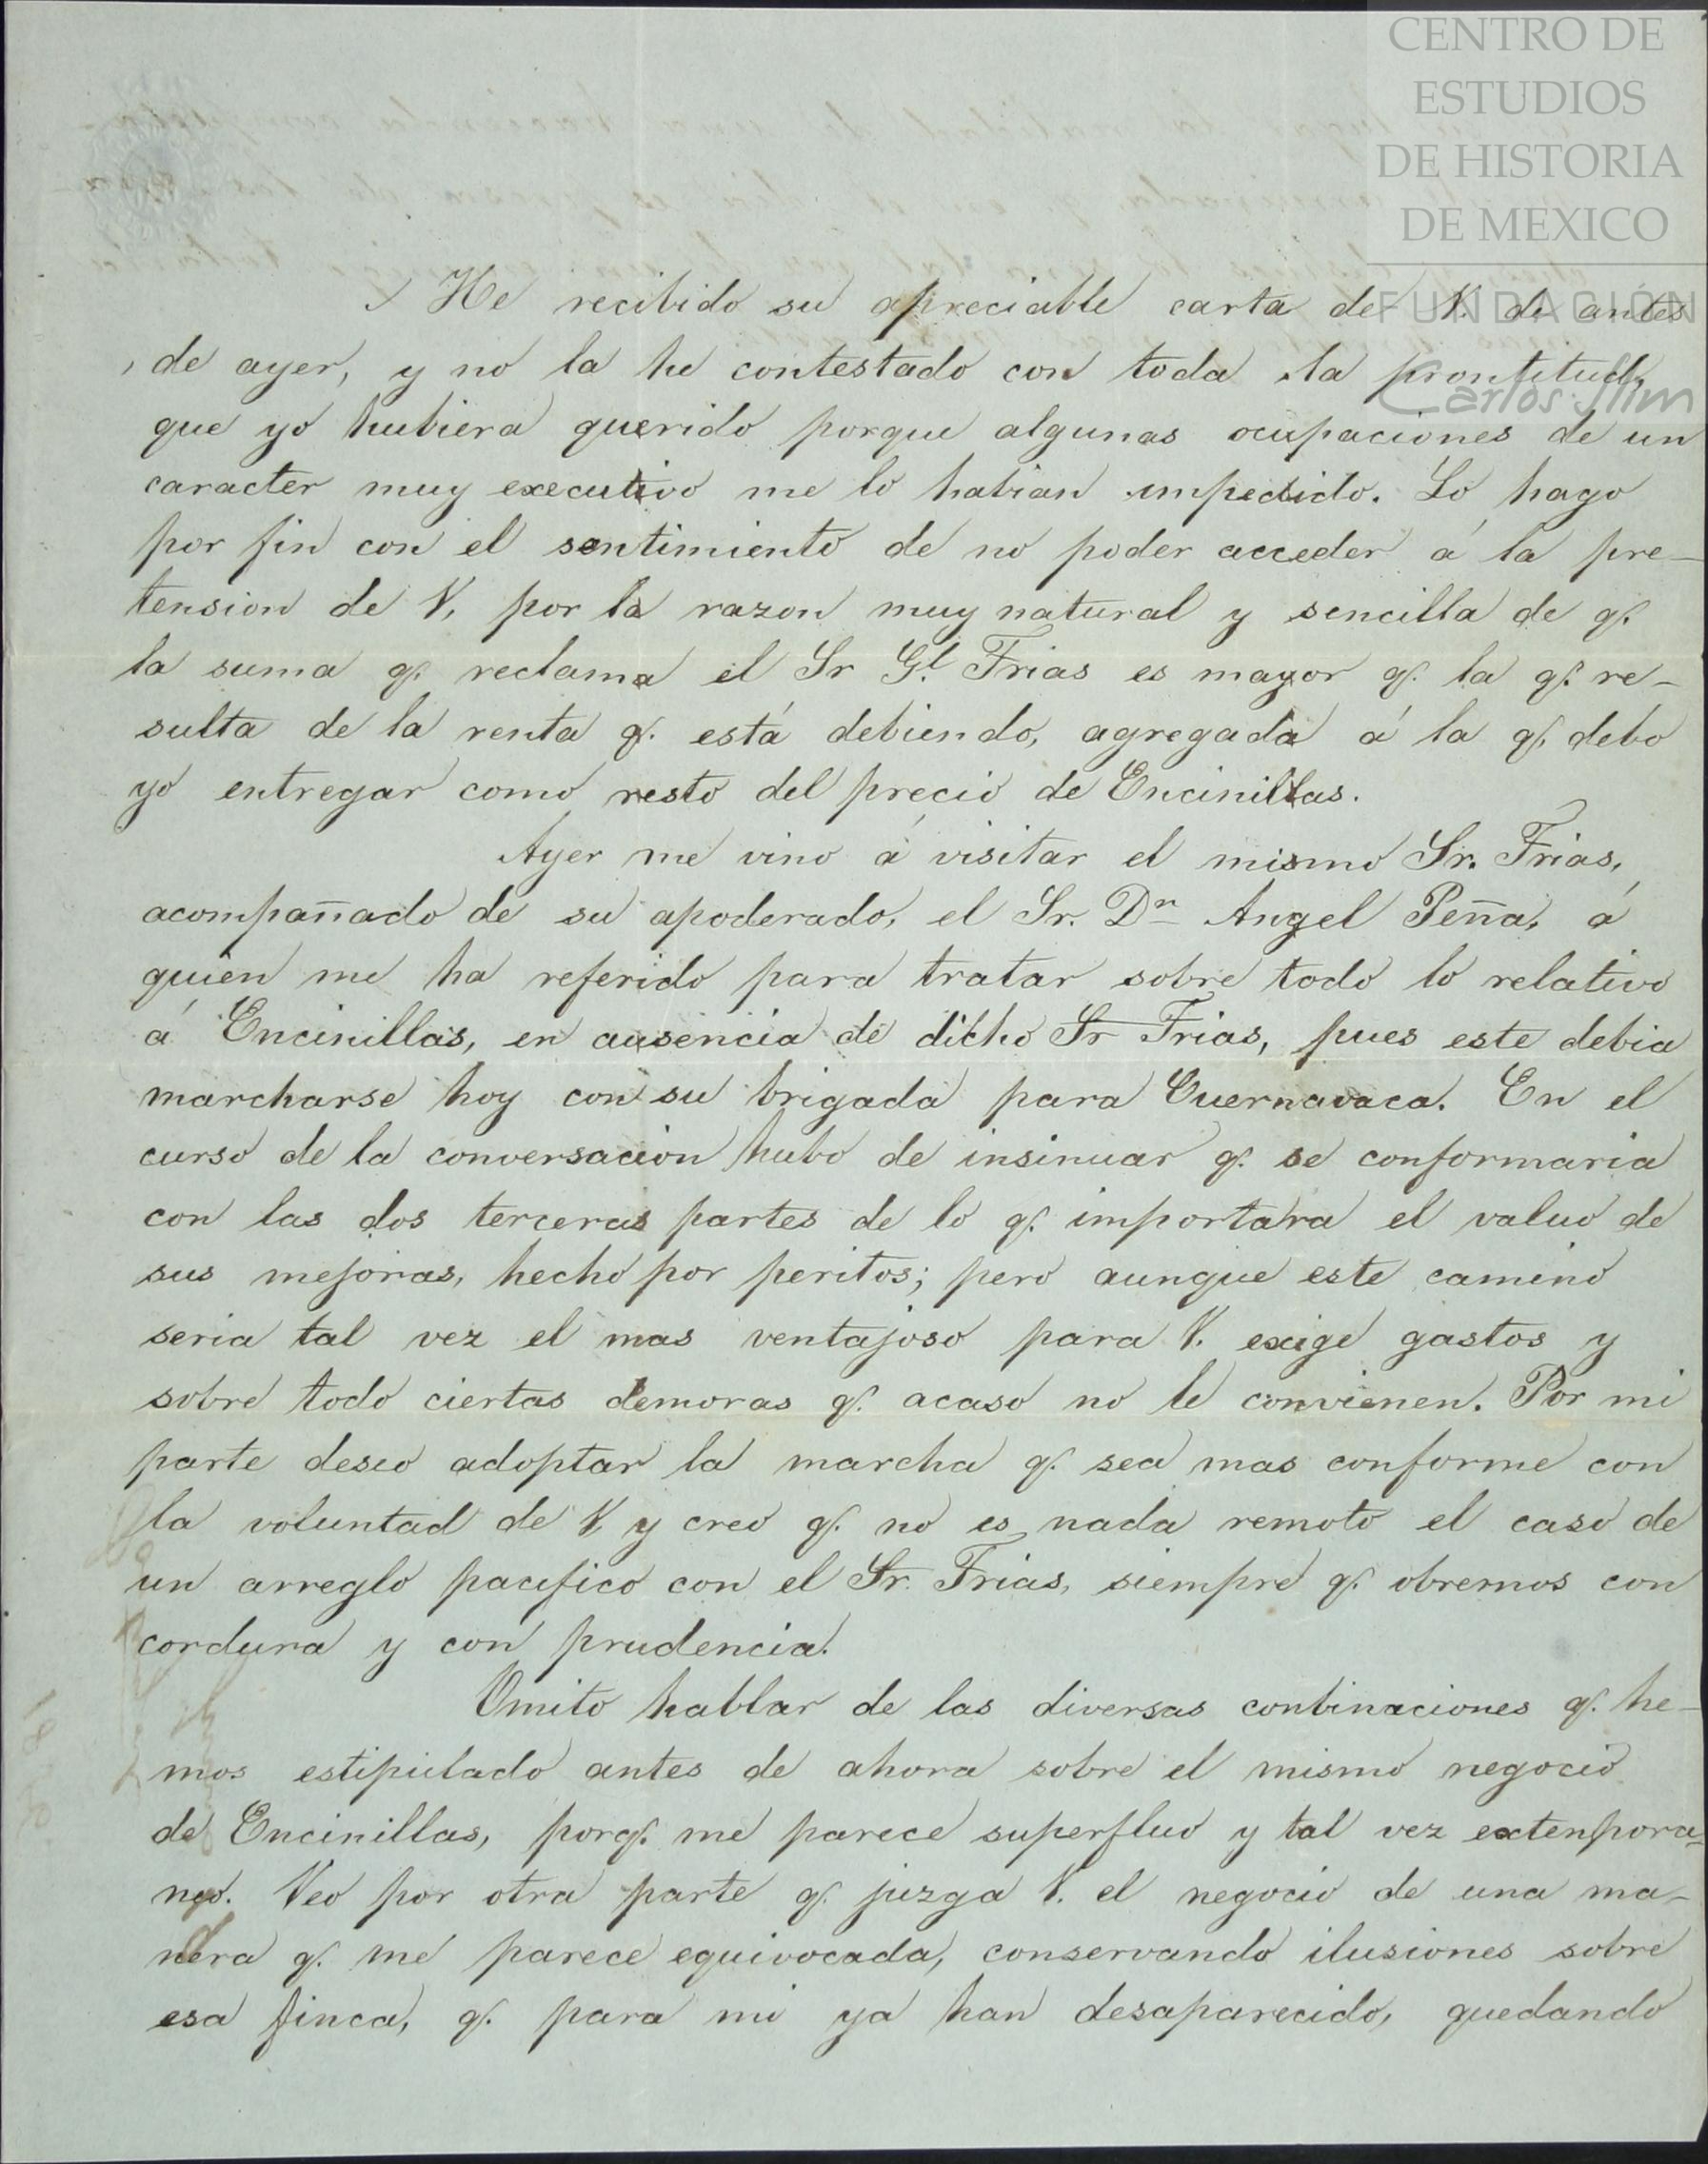 CENTRO DE
ESTUDIOS
DE HISTORIA
DE MEXICO
FUNDACIÓN
Carlos Slim
He recibido su apreciable carta de V. de antes
de ayer, y no la he contestado con toda la prontitud,
que yo hubiera querido porque algunas ocupaciones de un
caracter muy executivo me lo habian impedido. Lo hago
por fin con el sentimiento de no poder acceder á la pre-
tension de V, por la razon muy natural y sencilla de q.
la suma q. reclama el Sr Gl. Frias es mayor q. la q. re-
sulta de la renta q. está debiendo, agregada á la q. debo
yo entregar como resto del precio de Encinillas.
Ayer me vino á visitar el mismo Sr. Frias,
acompañado de su apoderado, el Sr. Dn Angel Peña, á
quien me ha referido para tratar sobre todo lo relativo
á Encinillas, en ausencia de dicho Sr Frias, pues este debia
marcharse hoy con su brigada para Cuernavaca. En el
curso de la conversacion hubo de insinuar q. se conformaria
con las dos terceras partes de lo q. importara el valuo de
sus mejoras, hecho por peritos; pero aunque este camino
seria tal vez el mas ventajoso para V. exige gastos y
sobre todo ciertas demoras q. acaso no le convienen. Por mi
parte deseo adoptar la marcha q. sea mas conforme con
la voluntad de V. y creo q. no es nada remoto el caso de
un arreglo pacifico con el Sr. Frias, siempre q. obremos con
cordura y con prudencia.
Omito hablar de las diversas conbinaciones q. he-
mos estipulado antes de ahora sobre el mismo negocio
de Encinillas, porq. me parece superfluo y tal vez extenpora-
neo. Veo por otra parte q. juzga V. el negocio de una ma-
nera q. me parece equivocada, conservando ilusiones sobre
esa finca, q. para mi ya han desaparecido, quedando